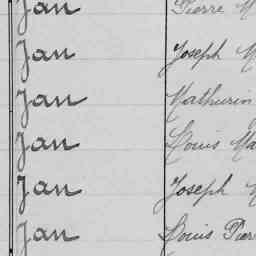 Jan Pierre M
Jan Joseph M
Jan Mathurin
Jan Louis Ma
Jan Joseph M
Jan Louis Pier